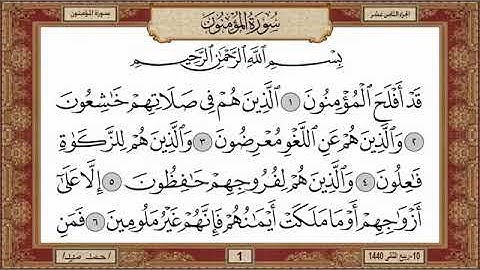 الجزء الثامن عشر
سورة المؤمنون
سُورَةُ المُؤْمِنُونَ
بِسْمِ اللَّهِ الرَّحْمَٰنِ الرَّحِيمِ
قَدْ أَفْلَحَ الْمُؤْمِنُونَ ١ الَّذِينَ هُمْ فِي صَلَاتِهِمْ خَاشِعُونَ
٢ وَالَّذِينَ هُمْ عَنِ اللَّغْوِ مُعْرِضُونَ ٣ وَالَّذِينَ هُمْ لِلزَّكَوٰةِ
فَاعِلُونَ ٤ وَالَّذِينَ هُمْ لِفُرُوجِهِمْ حَافِظُونَ ٥ إِلَّا عَلَىٰ
أَزْوَاجِهِمْ أَوْ مَا مَلَكَتْ أَيْمَانُهُمْ فَإِنَّهُمْ غَيْرُ مَلُومِينَ ٦ فَمَنِ
10-ربيع الثاني 1440
1